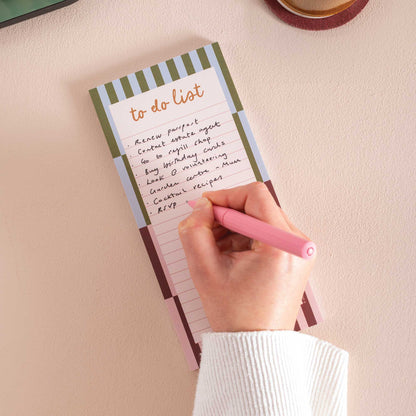 to do list
· Renew passport
· Contact estate agent
· Go to refill shop
· Buy birthday cards
· Look @ volunteering
· Garden centre - Mum
· Cocktail recipes
· RSVP